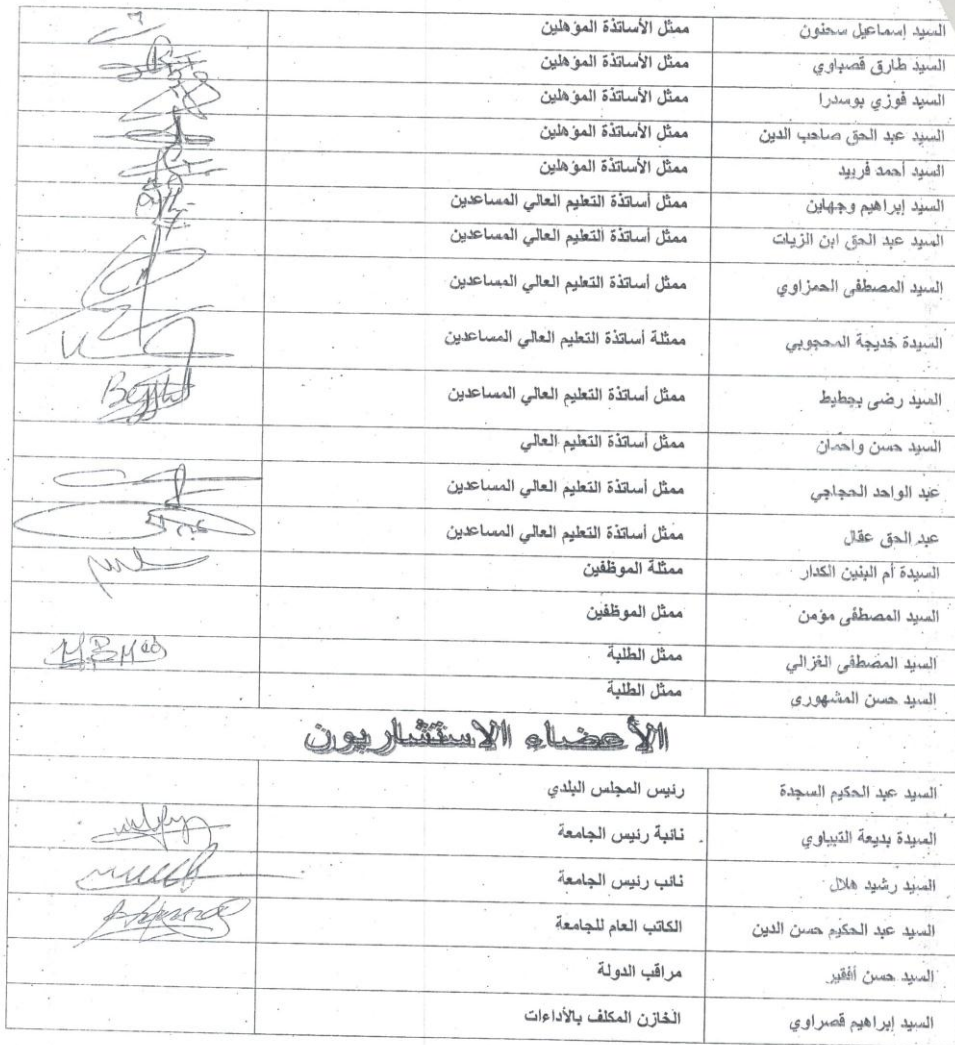 السيد إسماعيل سحنون ممثل الأساتذة المؤهلين
السيد طارق قصباوي ممثل الأساتذة المؤهلين
السيد فوزي بوسدرا ممثل الأساتذة المؤهلين
السيد عبد الحق صاحب الدين ممثل الأساتذة المؤهلين
السيد أحمد فربيد ممثل الأساتذة المؤهلين
السيد إبراهيم وجهاين ممثل أساتذة التعليم العالي المساعدين
السيد عبد الحق ابن الزيات ممثل أساتذة التعليم العالي المساعدين
السيد المصطفى الحمزاوي ممثل أساتذة التعليم العالي المساعدين
السيدة خديجة المحجوبي ممثلة أساتذة التعليم العالي المساعدين
السيد رضى بجطيط ممثل أساتذة التعليم العالي المساعدين
السيد حسن واحمان ممثل أساتذة التعليم العالي
عبد الواحد الحجاجي ممثل أساتذة التعليم العالي المساعدين
عبد الحق عقال ممثل أساتذة التعليم العالي المساعدين
السيدة أم البنين الكدار ممثلة الموظفين
السيد المصطفى مؤمن ممثل الموظفين
السيد المصطفى الغزالي ممثل الطلبة
السيد حسن المشهوري ممثل الطلبة
الأعضاء الاستشاريون
السيد عبد الحكيم السجدة رئيس المجلس البلدي
السيدة بديعة التبياوي نائبة رئيس الجامعة
السيد رشيد هلال نائب رئيس الجامعة
السيد عبد الحكيم حسن الدين الكاتب العام للجامعة
السيد حسن أفقير مراقب الدولة
السيد إبراهيم قصراوي الخازن المكلف بالأداءات